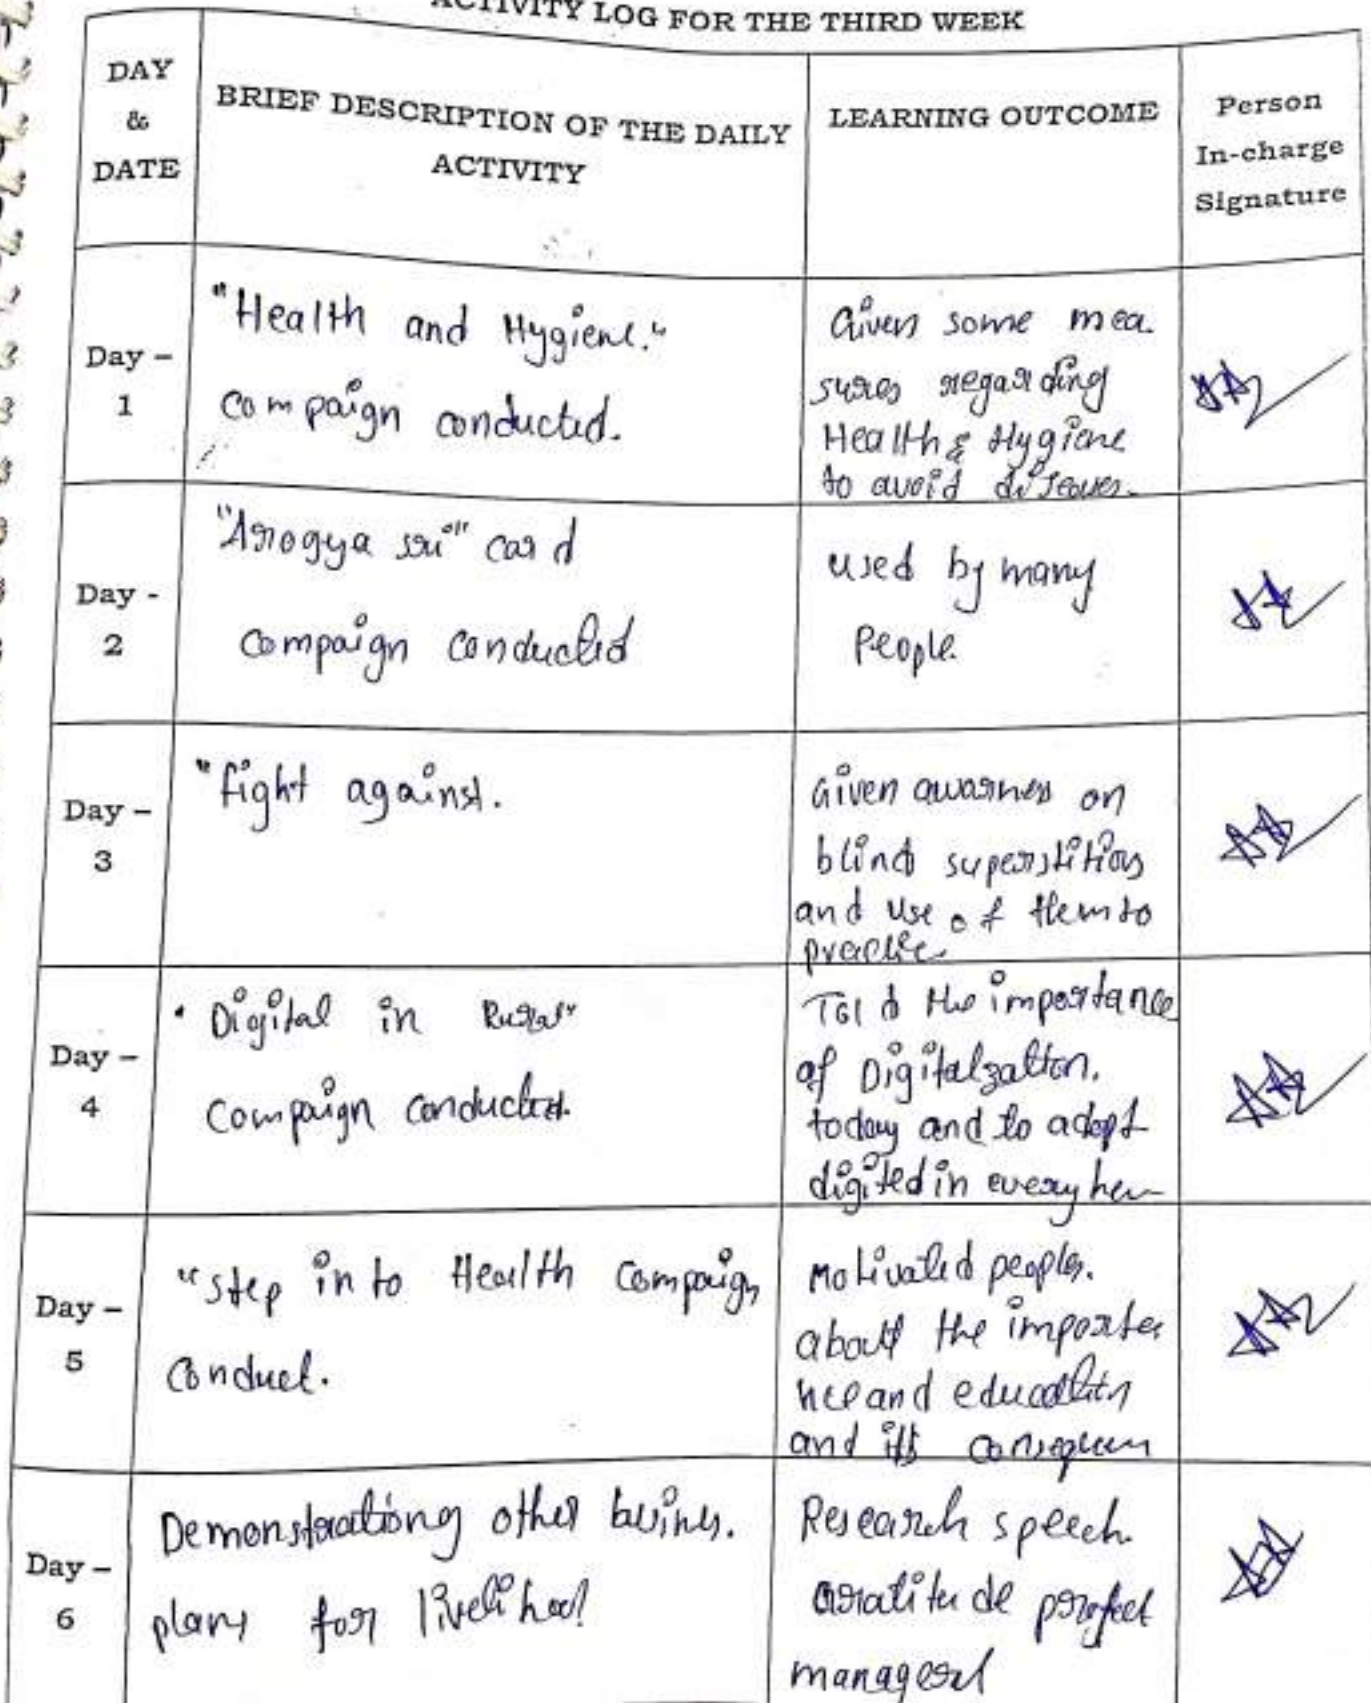 ACTIVITY LOG FOR THE THIRD WEEK
DAY
&
DATE
BRIEF DESCRIPTION OF THE DAILY
ACTIVITY
LEARNING OUTCOME
Person
In-charge
Signature
Day –
1
"Health and Hygiene."
campaign conducted.
Given some mea.
sures regarding
Health & Hygiene
to avoid diseases.
Day -
2
"Arogya sri" card
campaign conducted
used by many
People.
Day –
3
"fight against.
Given awarnes on
blind superstitions
and use of them to
practice
Day –
4
"Digital in Rural"
Campaign conducted.
Told the importance
of Digitalzation.
today and to adopt
digited in every
Day –
5
"step in to Health campaign
conduct.
Motivated peoples.
about the importa
nce and education
and its
Day –
6
Demonstrationg other busines.
plans for livelihool
Research speech.
Gratitude